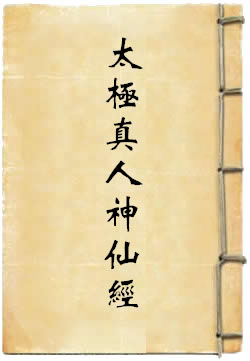 太極真人神仙經